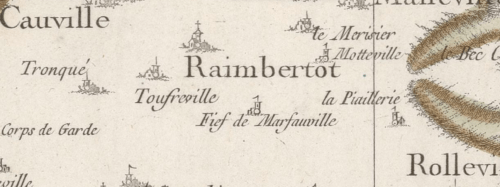 Cauville
le Merisier
Motteville
le Bec
Tronqué
Raimbertot
Toufreville
la Piaillerie
Fief de Marfauville
Corps de Garde
Rollevi
ville